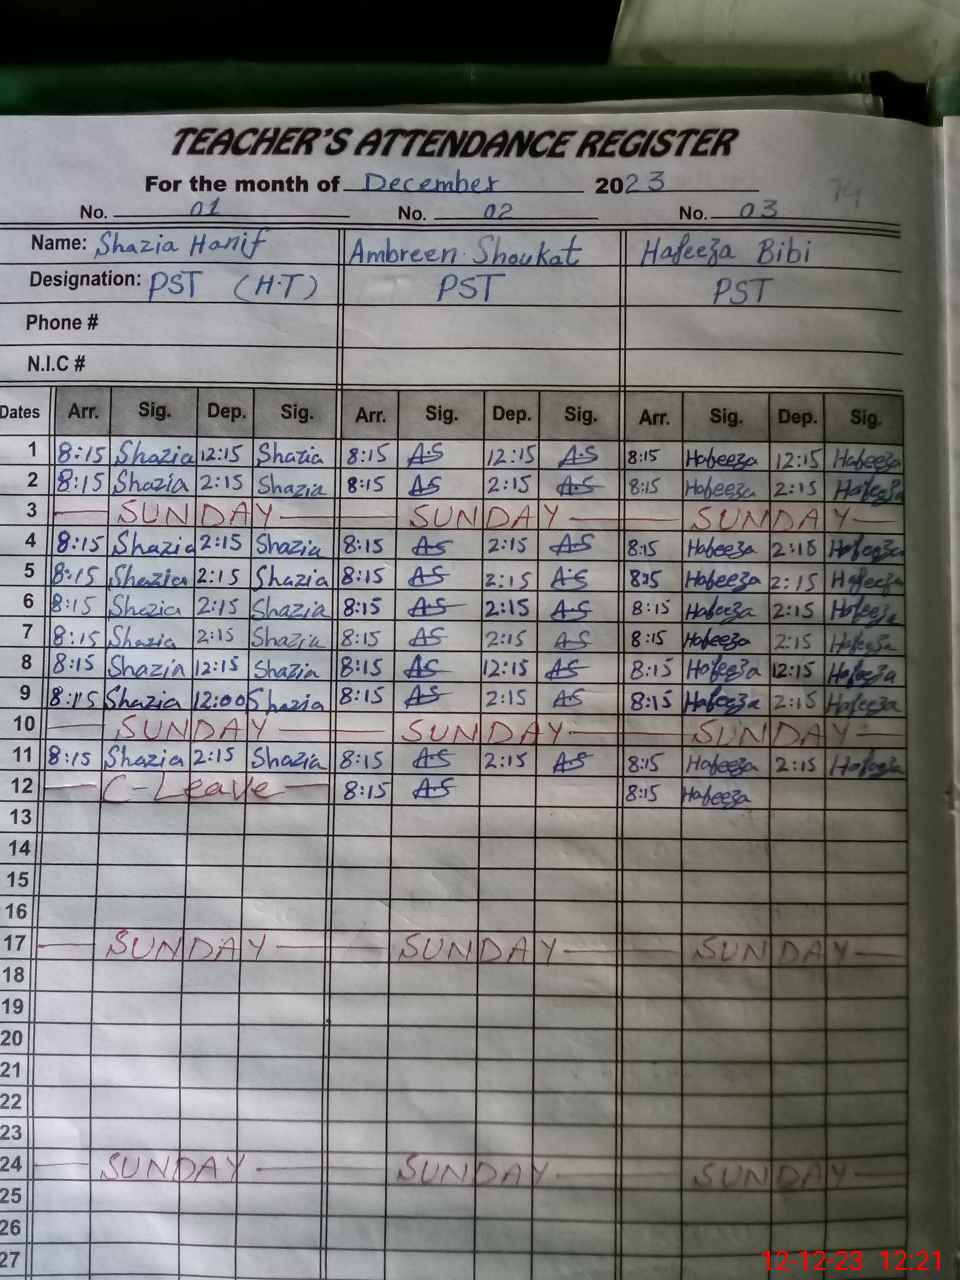 TEACHER'S ATTENDANCE REGISTER
For the month of December 2023
74
No. 01 No. 02 No. 03
Name: Shazia Hanif Ambreen Shoukat Hafeeza Bibi
Designation: PST (H.T) PST PST
Phone #
N.I.C #
Dates Arr. Sig. Dep. Sig. Arr. Sig. Dep. Sig. Arr. Sig. Dep. Sig.
1 8:15 Shazia 12:15 Shazia 8:15 A.S 12:15 A.S 8:15 Hafeeza 12:15 Hafeeza
2 8:15 Shazia 2:15 Shazia 8:15 AS 2:15 A.S 8:15 Hafeeza 2:15 Hafeeza
3 SUNDAY SUNDAY SUNDAY
4 8:15 Shazia 2:15 Shazia 8:15 AS 2:15 AS 8:15 Hafeeza 2:15 Hafeeza
5 8:15 Shazia 2:15 Shazia 8:15 AS 2:15 A.S 8:15 Hafeeza 2:15 Hafeeza
6 8:15 Shazia 2:15 Shazia 8:15 AS 2:15 A.S 8:15 Hafeeza 2:15 Hafeeza
7 8:15 Shazia 2:15 Shazia 8:15 AS 2:15 AS 8:15 Hafeeza 2:15 Hafeeza
8 8:15 Shazia 12:15 Shazia 8:15 AS 12:15 AS 8:15 Hafeeza 12:15 Hafeeza
9 8:15 Shazia 12:00 Shazia 8:15 AS 2:15 AS 8:15 Hafeeza 2:15 Hafeeza
10 SUNDAY SUNDAY SUNDAY
11 8:15 Shazia 2:15 Shazia 8:15 A.S 2:15 AS 8:15 Hafeeza 2:15 Hafeeza
12 C-Leave 8:15 A.S 8:15 Hafeeza
13
14
15
16
17 SUNDAY SUNDAY SUNDAY
18
19
20
21
22
23
24 SUNDAY SUNDAY SUNDAY
25
26
27
12-12-23 12:21